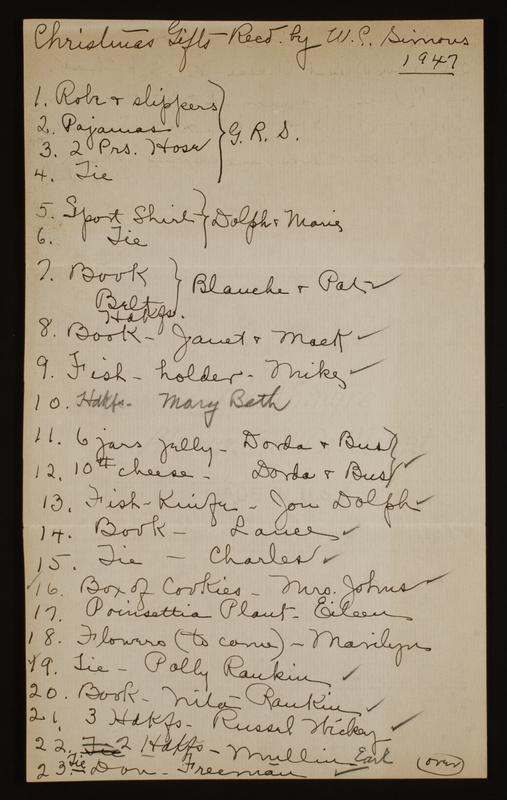 Christmas Gifts Recd. by W.C. Simons
1947
1. Robe & slippers
2. Pajamas
3. 2 Prs. Hose
4. Tie
G.R.S.
5. Sport Shirt
6. Tie
Dolph & Marie
7. Book
Belt
Hdkfs.
Blanche & Pat
8. Book - Janet & Mack
9. Fish-holder - Mike
10. Hdkfs - Mary Beth
11. 6 jars jelly - Dorda & Bus
12. 10# cheese - Dorda & Bus
13. Fish-Knife - Jon Dolph
14. Book - Lance
15. Tie - Charles
16. Box of Cookies - Mrs. Johns
17. Poinsettia Plant - Eileen
18. Flowers (to come) - Marilyn
19. Tie - Polly Rankin
20. Book - Nita Rankin
21. 3 Hdkfs - Russel Wickey
22. Tie 2 Hdkfs - Mullin Earl
23. Tie Don - Freeman
(over)